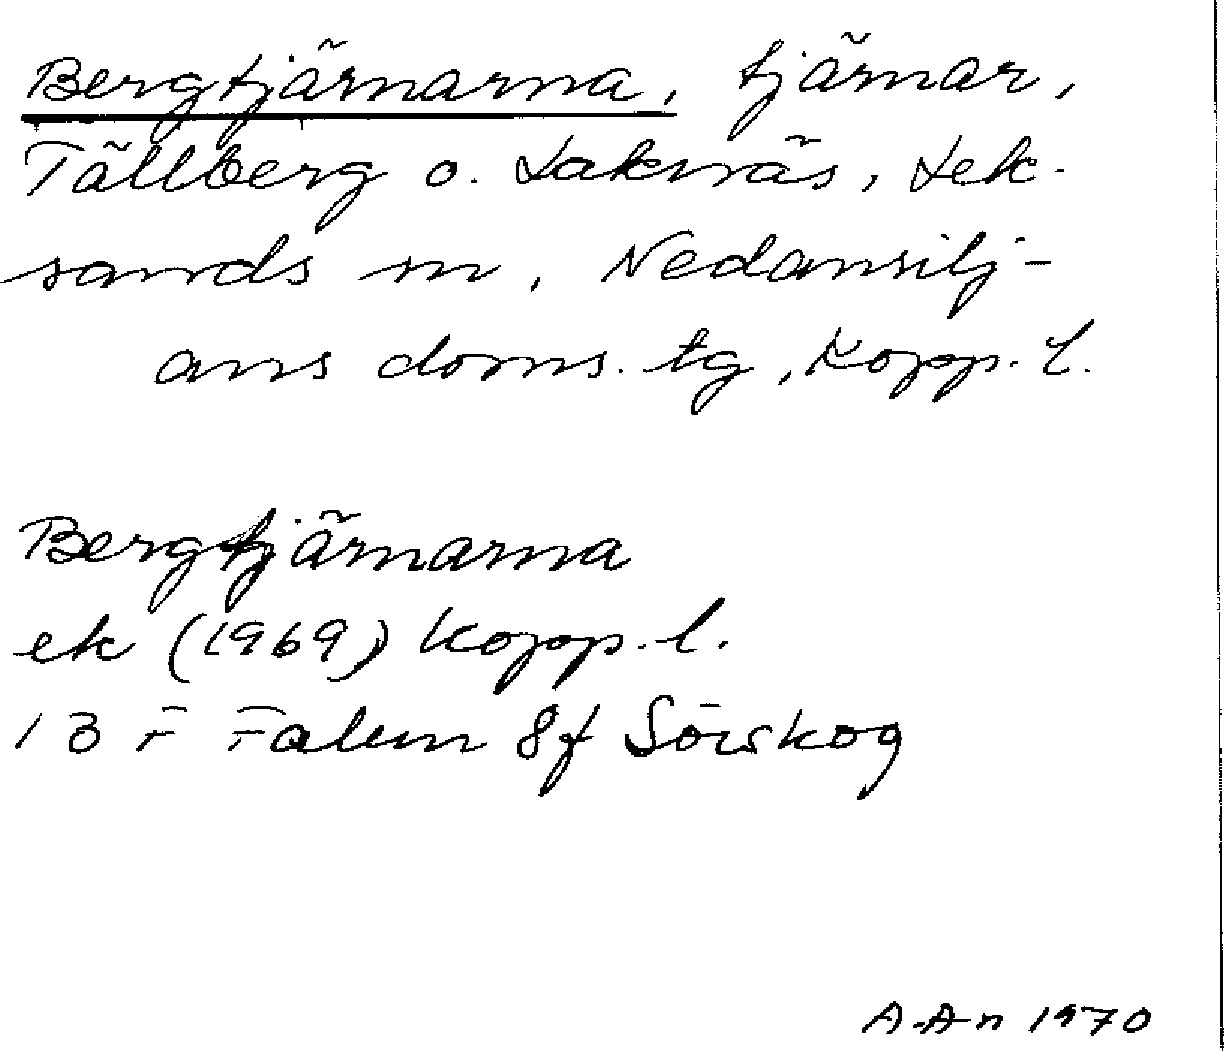 Bergtjärnarna, tjärnar,
Tällberg o. Laknäs, Lek-
sands sn, Nedansilj-
ans doms. tg, Kopp. l.
Bergtjärnarna
ek (1969) Kopp. l.
13 F Falun 8f Sörskog
A-An 1970